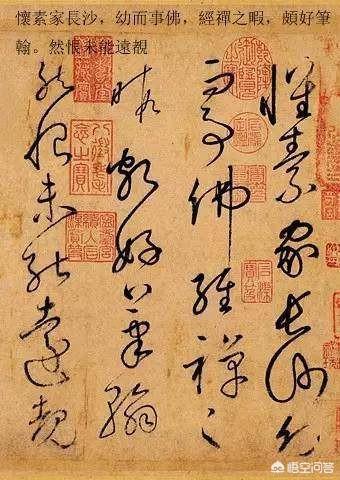 懷素家長沙，幼而事佛，經禪之暇，頗好筆
翰。然恨未能遠覩
懷素家長沙幼
而事佛經禪之
暇頗好筆翰
然恨未能遠覩
八徵耄念之寶
悟空问答